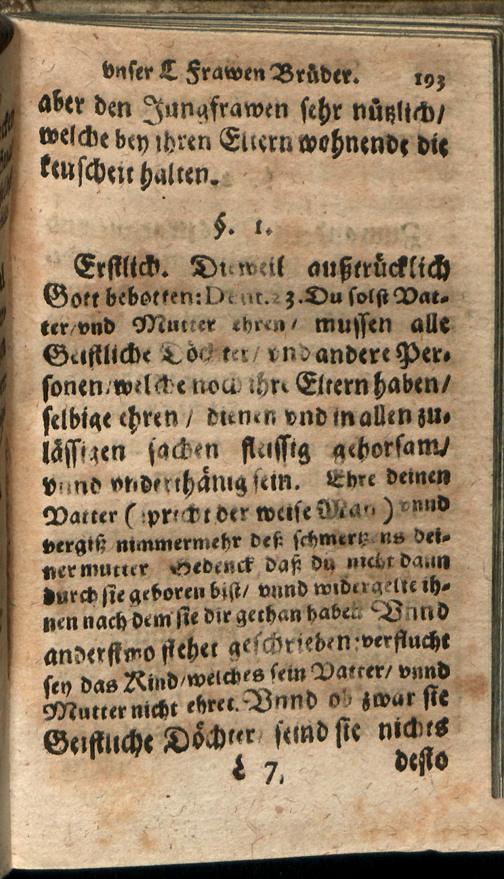 vnser L Frawen Brüder. 193
aber den Jungfrawen sehr nützlich/
welche bey ihren Eltern wohnende die
keuscheit halten.
§. 1.
Erstlich. Dieweil außtrücklich
Gott hebotten: Deut. 23. Du solst Vat-
ter/vnd Mutter ehren/ mussen alle
Geistliche Töchter/ vnd andere Per-
sonen/welche noch ihre Eltern haben/
selbige ehren/ dienen vnd in allen zu-
lässigen sachen fleissig gehorsam/
vnnd vnderthänig sein. Ehre deinen
Vatter (spricht der weise Man) vnnd
vergiß nimmermehr deß schmertzens dei-
ner mutter Gedenck daß du nicht dann
durch sie geboren bist/ vnnd widergelte ih-
nen nach dem sie dir gethan haben Vnnd
anderstwo stehet geschrieben: verflucht
sey das Kind/welches sein Vatter/ vnnd
Mutter nicht ehret. Vnnd ob zwar sie
Geistliche Döchter seind sie nichts
7. desto